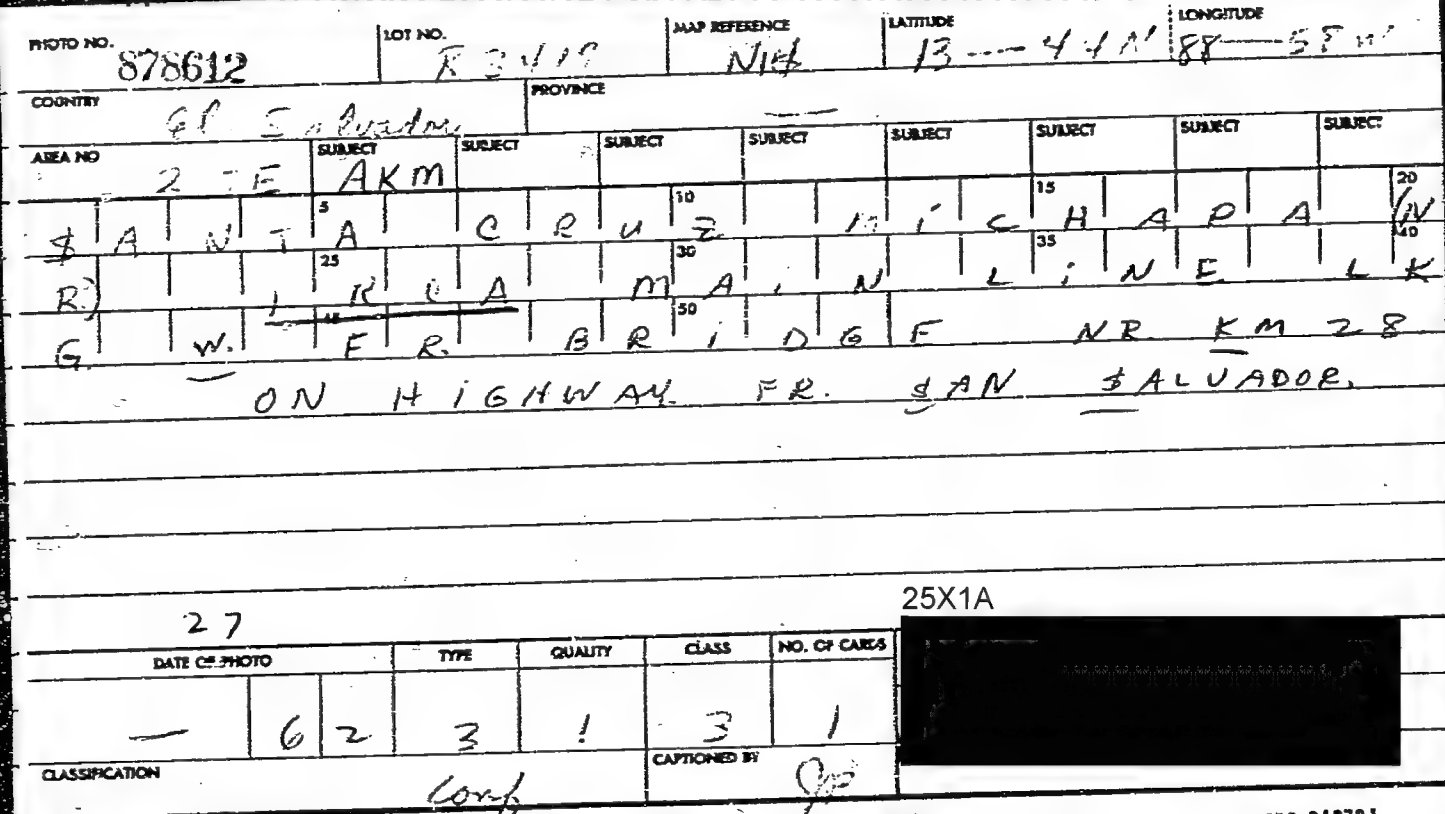 PHOTO NO. 878612 LOT NO. R 3419 MAP REFERENCE LATITUDE 13 -- 44 N LONGITUDE 88 -- 58 W
COUNTRY El Salvador PROVINCE —
AREA NO SUBJECT SUBJECT SUBJECT SUBJECT SUBJECT SUBJECT SUBJECT SUBJECT
2 AKM
5 10 15 20
SANTA CRUZ MiCHAPA (N
25 30 35 40
R.) IRCA MAIN LiNE LK
45 50
G. W. FR. BRiDGE NR. KM 28
ON HiGHWAY FR. SAN SALVADOR.
27
25X1A
DATE OF PHOTO TYPE QUALITY CLASS NO. OF CARDS
— 62 3 1 3 1
CLASSIFICATION Conf CAPTIONED BY